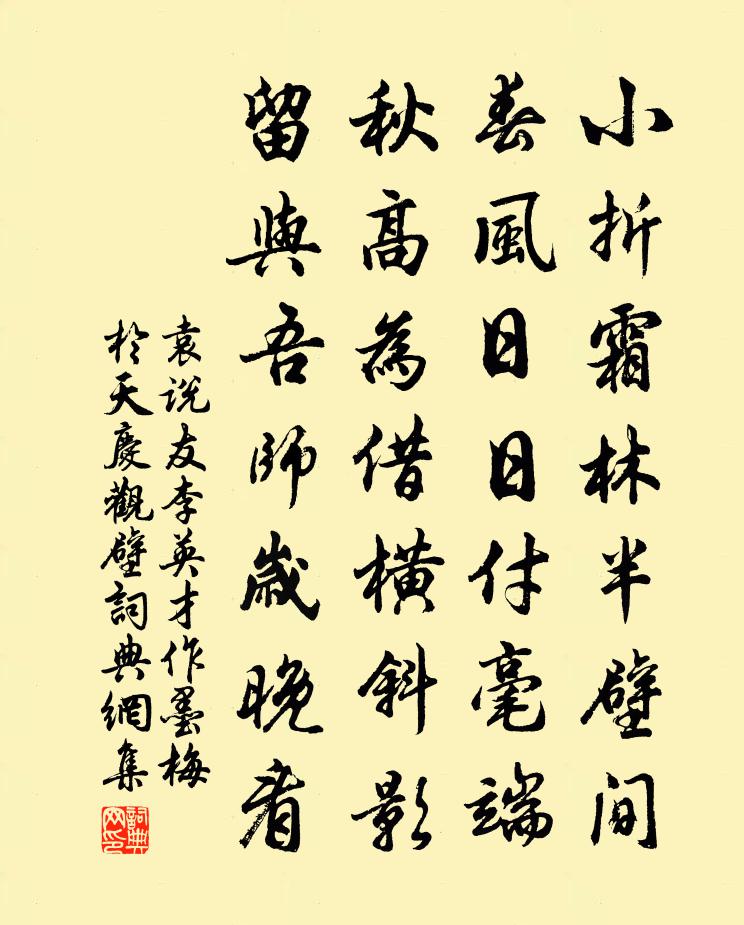 小折霜林半壁間
春風日日付毫端
秋高為借橫斜影
留與吾師歲晚看
袁说友李英才作墨梅
於天慶觀壁詞典網集
詞典
网印